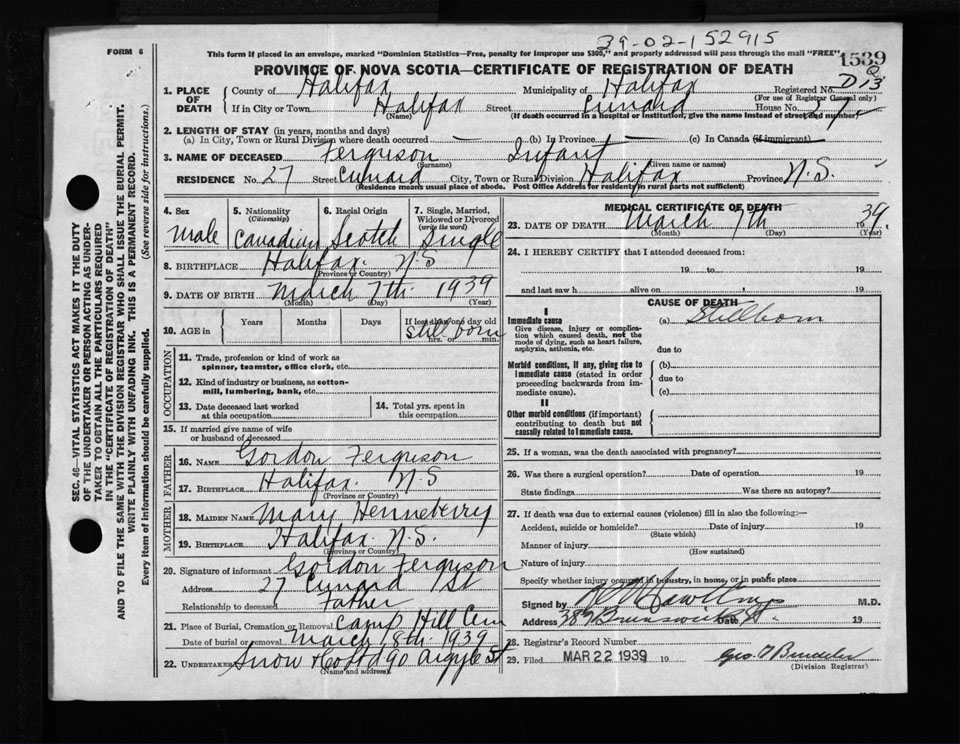 FORM 6
39-02-152915
This form if placed in an envelope, marked "Dominion Statistics—Free, penalty for improper use $300," and properly addressed will pass through the mail "FREE"
1539
PROVINCE OF NOVA SCOTIA—CERTIFICATE OF REGISTRATION OF DEATH
1. PLACE OF DEATH County of Halifax Municipality of Halifax Registered No.
(For use of Registrar General only)
If in City or Town Halifax Street Cunard House No. 27
(Name) (If death occurred in a hospital or institution, give the name instead of street and number)
2. LENGTH OF STAY (in years, months and days)
(a) In City, Town or Rural Division where death occurred — (b) In Province — (c) In Canada (if immigrant)
3. NAME OF DECEASED Ferguson Infant
(Surname) (Given name or names)
RESIDENCE No. 27 Street Cunard City, Town or Rural Division Halifax Province N.S.
(Residence means usual place of abode. Post Office Address for residents in rural parts not sufficient)
4. Sex
Male
5. Nationality
(Citizenship)
Canadian
6. Racial Origin
Scotch
7. Single, Married,
Widowed or Divorced
(write the word)
Single
8. BIRTHPLACE Halifax. N.S
(Province or Country)
9. DATE OF BIRTH March 7th. 1939
(Month) (Day) (Year)
10. AGE in Years Months Days If less than one day old
still born
hrs. or min.
OCCUPATION
11. Trade, profession or kind of work as
spinner, teamster, office clerk, etc.
12. Kind of industry or business, as cotton-
mill, lumbering, bank, etc.
13. Date deceased last worked
at this occupation
14. Total yrs. spent in
this occupation
15. If married give name of wife
or husband of deceased
FATHER
16. NAME Gordon Ferguson
17. BIRTHPLACE Halifax. N.S
(Province or Country)
MOTHER
18. MAIDEN NAME Mary Henneberry
19. BIRTHPLACE Halifax. N.S.
(Province or Country)
20. Signature of informant Gordon Ferguson
Address 27 Cunard St
Relationship to deceased Father
21. Place of Burial, Cremation or Removal Camp Hill Cem
Date of burial or removal March 8th. 1939
22. UNDERTAKER Snow & Co Ltd 90 Argyle St
(Name and address)
MEDICAL CERTIFICATE OF DEATH
23. DATE OF DEATH March 7th 1939
(Month) (Day) (Year)
24. I HEREBY CERTIFY that I attended deceased from:
19 to 19
and last saw h alive on , 19
CAUSE OF DEATH
I
Immediate cause
Give disease, injury or complica-
tion which caused death, not the
mode of dying, such as heart failure,
asphyxia, asthenia, etc.
(a) Stillborn
due to
Morbid conditions, if any, giving rise to
immediate cause (stated in order
proceeding backwards from im-
mediate cause).
(b)
due to
(c)
II
Other morbid conditions (if important)
contributing to death but not
causally related to immediate cause.
25. If a woman, was the death associated with pregnancy?
26. Was there a surgical operation? Date of operation 19
State findings Was there an autopsy?
27. If death was due to external causes (violence) fill in also the following:—
Accident, suicide or homicide? Date of injury 19
(State which)
Manner of injury
(How sustained)
Nature of injury
Specify whether injury occurred in industry, in home, or in public place
Signed by M.D.
Address 389 Brunswick St. Date
28. Registrar's Record Number
29. Filed MAR 22 1939 19
(Division Registrar)
SEC. 46—VITAL STATISTICS ACT MAKES IT THE DUTY
OF THE UNDERTAKER OR PERSON ACTING AS UNDER-
TAKER TO OBTAIN ALL THE PARTICULARS REQUIRED
IN THE "CERTIFICATE OF REGISTRATION OF DEATH"
AND TO FILE THE SAME WITH THE DIVISION REGISTRAR WHO SHALL ISSUE THE BURIAL PERMIT.
WRITE PLAINLY WITH UNFADING INK. THIS IS A PERMANENT RECORD.
Every item of information should be carefully supplied. (See reverse side for instructions.)